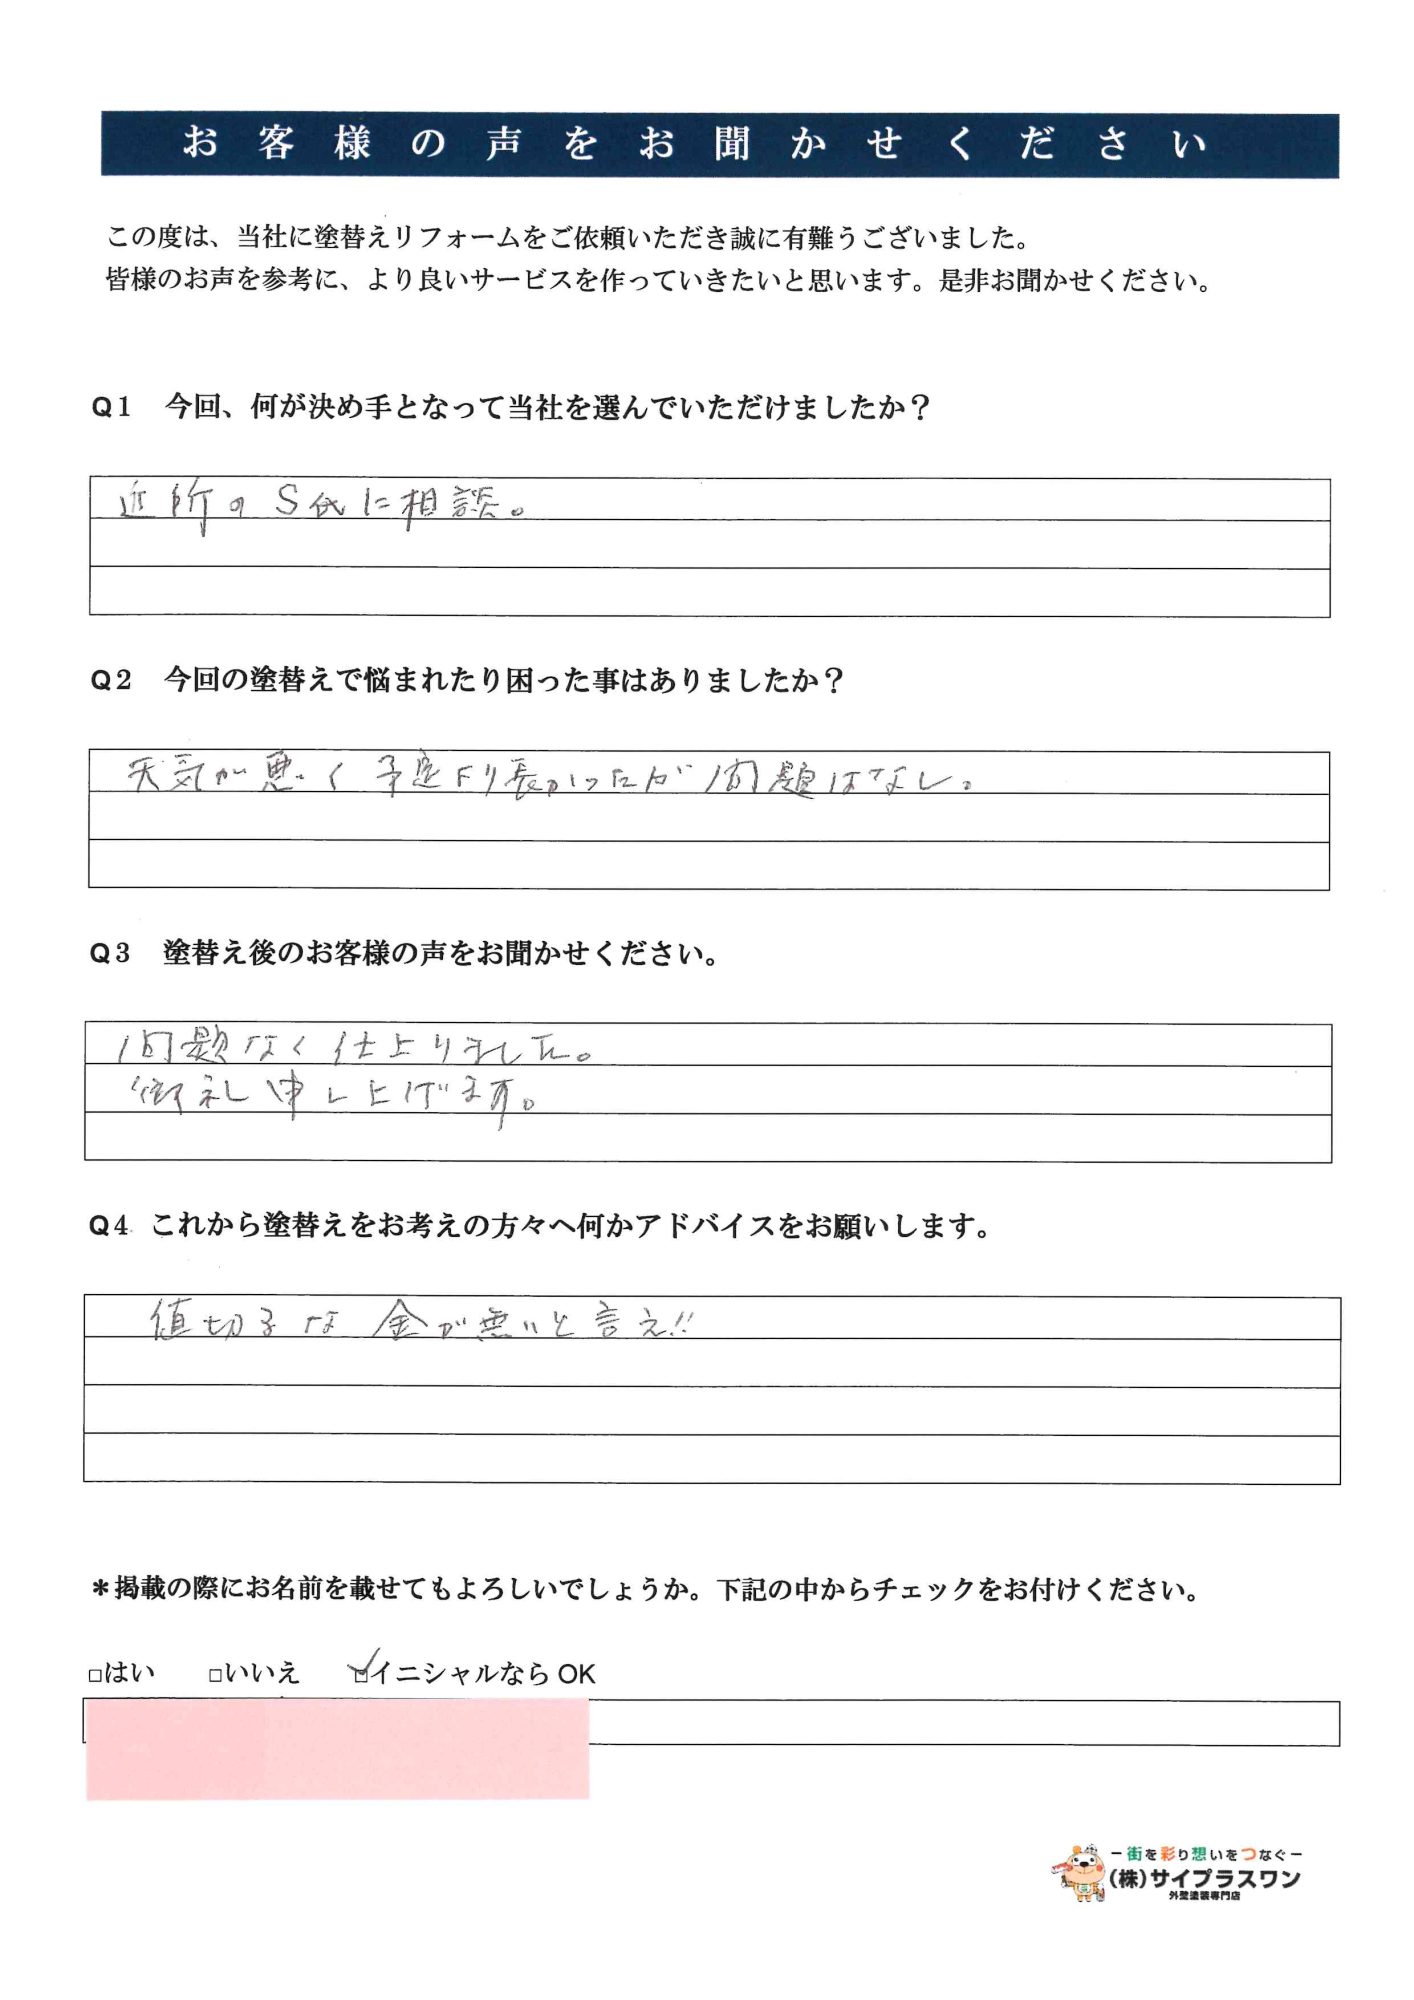 お客様の声をお聞かせください
この度は、当社に塗替えリフォームをご依頼いただき誠に有難うございました。
皆様のお声を参考に、より良いサービスを作っていきたいと思います。是非お聞かせください。
Q1 今回、何が決め手となって当社を選んでいただけましたか？
近所のS氏に相談。
Q2 今回の塗替えで悩まれたり困った事はありましたか？
天気が悪く予定より長かったが問題はなし。
Q3 塗替え後のお客様の声をお聞かせください。
問題なく仕上りました。
御礼申し上げます。
Q4 これから塗替えをお考えの方々へ何かアドバイスをお願いします。
値切るな 金が無いと言え!!
＊掲載の際にお名前を載せてもよろしいでしょうか。下記の中からチェックをお付けください。
□はい □いいえ ☑イニシャルならOK
ー街を彩り想いをつなぐー
(株)サイプラスワン
外壁塗装専門店